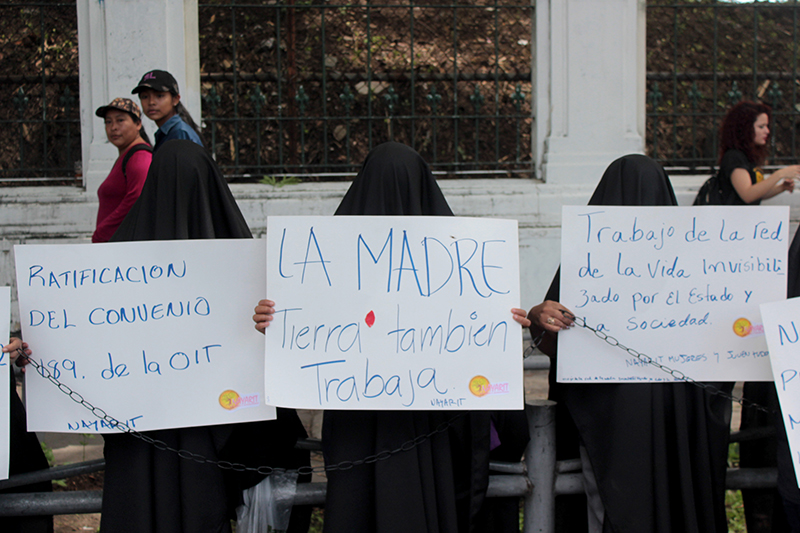 RATIFICACION
DEL CONVENIO
189. de la OIT
NAYARIT
LA MADRE
Tierra también
Trabaja.
NAYARIT
Trabajo de la red
de la vida Invisibili
zado por el Estado y
la Sociedad.
NAYARIT MUJERES Y